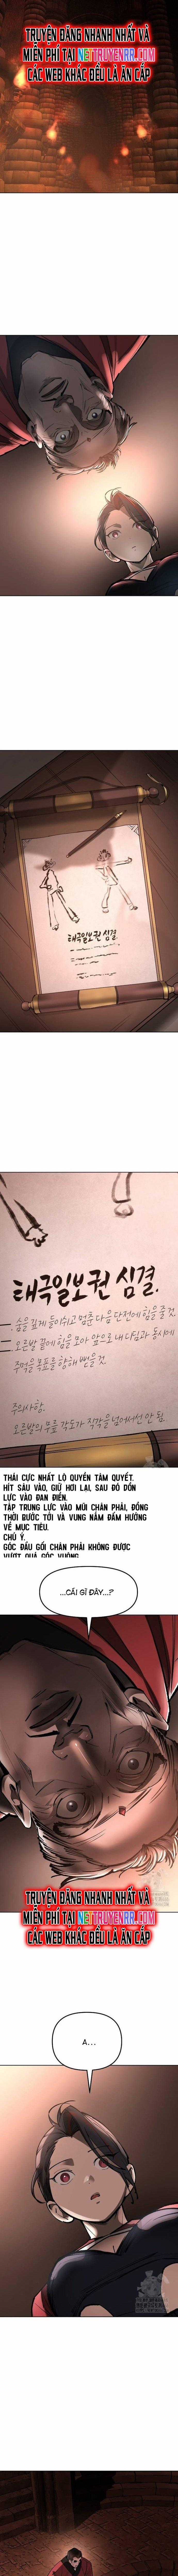 TRUYỆN ĐĂNG NHANH NHẤT VÀ
MIỄN PHÍ TẠI NETTRUYENRR.COM
CÁC WEB KHÁC ĐỀU LÀ ĂN CẮP
태극일보권 심결.
태극일보권 심결.
숨을 깊게 들이쉬고 멈춘 다음 단전에 힘을 줄 것.
오른발 끝에 힘을 모아 앞으로 내디딤과 동시에
주먹을 목표를 향해 뻗을 것.
주의사항.
오른발의 무릎 각도가 직각을 넘어서선 안 됨.
THÁI CỰC NHẤT LỘ QUYỀN TÂM QUYẾT.
HÍT SÂU VÀO, GIỮ HƠI LẠI, SAU ĐÓ DỒN
LỰC VÀO ĐAN ĐIỀN.
TẬP TRUNG LỰC VÀO MŨI CHÂN PHẢI, ĐỒNG
THỜI BƯỚC TỚI VÀ VUNG NẮM ĐẤM HƯỚNG
VỀ MỤC TIÊU.
CHÚ Ý.
GÓC ĐẦU GỐI CHÂN PHẢI KHÔNG ĐƯỢC
VƯỢT QUÁ GÓC VUÔNG.
...CÁI GÌ ĐÂY...?
TRUYỆN ĐĂNG NHANH NHẤT VÀ
MIỄN PHÍ TẠI NETTRUYENRR.COM
CÁC WEB KHÁC ĐỀU LÀ ĂN CẮP
A...